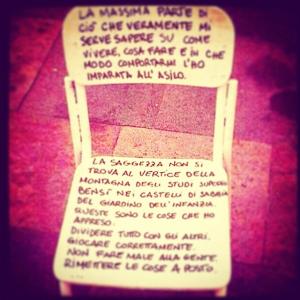 LA MASSIMA PARTE DI
CIÒ CHE VERAMENTE MI
SERVE SAPERE SU COME
VIVERE, COSA FARE E IN CHE
MODO COMPORTARMI L'HO
IMPARATA ALL'ASILO.
LA SAGGEZZA NON SI
TROVA AL VERTICE DELLA
MONTAGNA DEGLI STUDI SUPERIORI
BENSÌ NEI CASTELLI DI SABBIA
DEL GIARDINO DELL'INFANZIA
QUESTE SONO LE COSE CHE HO
APPRESO.
DIVIDERE TUTTO CON GLI ALTRI.
GIOCARE CORRETTAMENTE.
NON FARE MALE ALLA GENTE.
RIMETTERE LE COSE A POSTO.